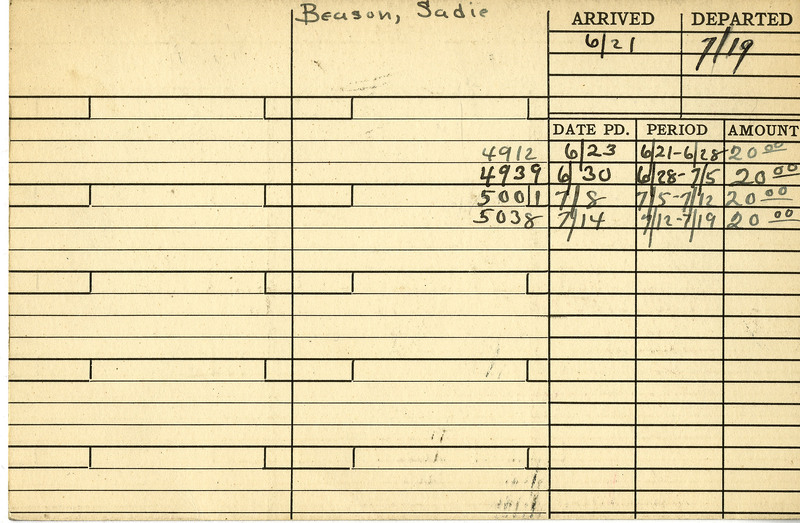 Beason, Sadie
ARRIVED DEPARTED
6/21 7/19
DATE PD. PERIOD AMOUNT
4912 6/23 6/21-6/28 20 00
4939 6/30 6/28-7/5 20 00
5001 7/8 7/5-7/12 20 00
5038 7/14 7/12-7/19 20 00